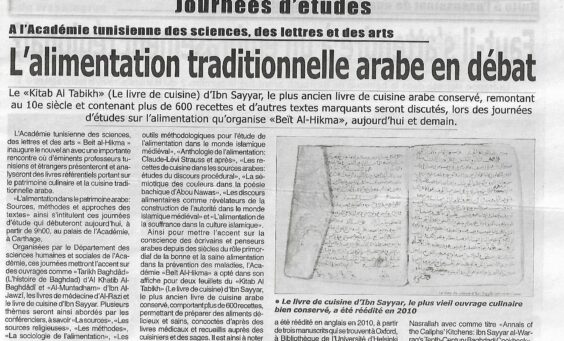 Journées d'études
A l'Académie tunisienne des sciences, des lettres et des arts
L'alimentation traditionnelle arabe en débat
Le «Kitab Al Tabikh» (Le livre de cuisine) d'Ibn Sayyar, le plus ancien livre de cuisine arabe conservé, remontant
au 10e siècle et contenant plus de 600 recettes et d'autres textes marquants seront discutés, lors des journées
d'études sur l'alimentation qu'organise «Beït Al-Hikma», aujourd'hui et demain.
L'Académie tunisienne des sciences,
des lettres et des arts « Beït Al-Hikma »
inaugure le nouvel an avec une importante
rencontre où d'éminents professeurs tuni-
siens et étrangers présenteront et ana-
lyseront des livres référentiels portant sur
le patrimoine culinaire et la cuisine tradi-
tionnelle arabe.
«L'alimentation dans le patrimoine arabe:
Sources, méthodes et approches des
textes» ainsi s'intitulent ces journées
d'étude qui débuteront aujourd'hui, à
partir de 9h00, au palais de l'Académie,
à Carthage.
Organisées par le Département des
sciences humaines et sociales de l'Aca-
démie, ces journées mettront l'accent sur
des ouvrages comme «Tarikh Baghdâd»
(L'histoire de Baghdad) d'Al Khatib Al-
Baghdâdî et «Al-Muntadham» d'Ibn Al-
Jawzî, les livres de médecine d'Al-Razi et
le livre de cuisine d'Ibn Sayyar. Plusieurs
thèmes seront ainsi abordés par les
conférenciers, à savoir «La sources», «Les
sources religieuses», «Les méthodes»,
«La sociologie de l'alimentation», «Les
outils méthodologiques pour l'étude de
l'alimentation dans le monde islamique
médiéval», «Anthologie de l'alimentation:
Claude-Lévi Strauss et après», «Les re-
cettes de cuisine dans les sources arabes:
études du discours procédural», «La sé-
miotique des couleurs dans la poésie
bachique d'Abou Nawas», «Les discours
alimentaires comme révélateurs de la
construction de l'autorité dans le monde
islamique médiéval» et «L'alimentation de
la souffrance dans la culture islamique».
Ainsi pour mettre l'accent sur la
conscience des écrivains et penseurs
arabes depuis des siècles du rôle primor-
dial de la bonne et la saine alimentation
dans la prévention des maladies, l'Aca-
démie «Beït Al-Hikma» a opté dans son
affiche pour deux feuillets du «Kitab Al
Tabikh» (Le livre de cuisine) d'Ibn Sayyar,
le plus ancien livre de cuisine arabe
conservé, comportant plus de 600 recettes,
permettant de préparer des aliments dé-
licieux et sains, concoctés d'après des
livres médicaux et recueillis auprès des
cuisiniers et des sages. Il est ainsi à noter
• Le livre de cuisine d'Ibn Sayyar, le plus vieil ouvrage culinaire
bien conservé, a été réédité en 2010
a été réédité en anglais en 2010, à partir
de trois manuscrits qui se trouvent à Oxford,
à Bibliothèque de l'Université d'Helsinki
Nasrallah avec comme titre «Annals of
the Caliphs' Kitchens: Ibn Sayyar al-War-
raq's Tenth-Century Baghdadi Cookbook»